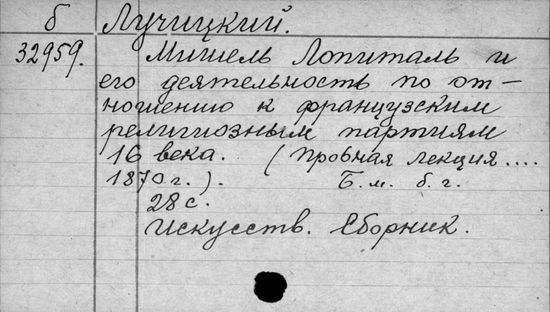 б Лучицкий.
32959. Мишель Лопиталь и
его деятельность по от-
ношению к французским
религиозным партиям
16 века. (Пробная лекция....
1870 г.). Б.м. б.г.
28 с.
Искусств. Сборник.